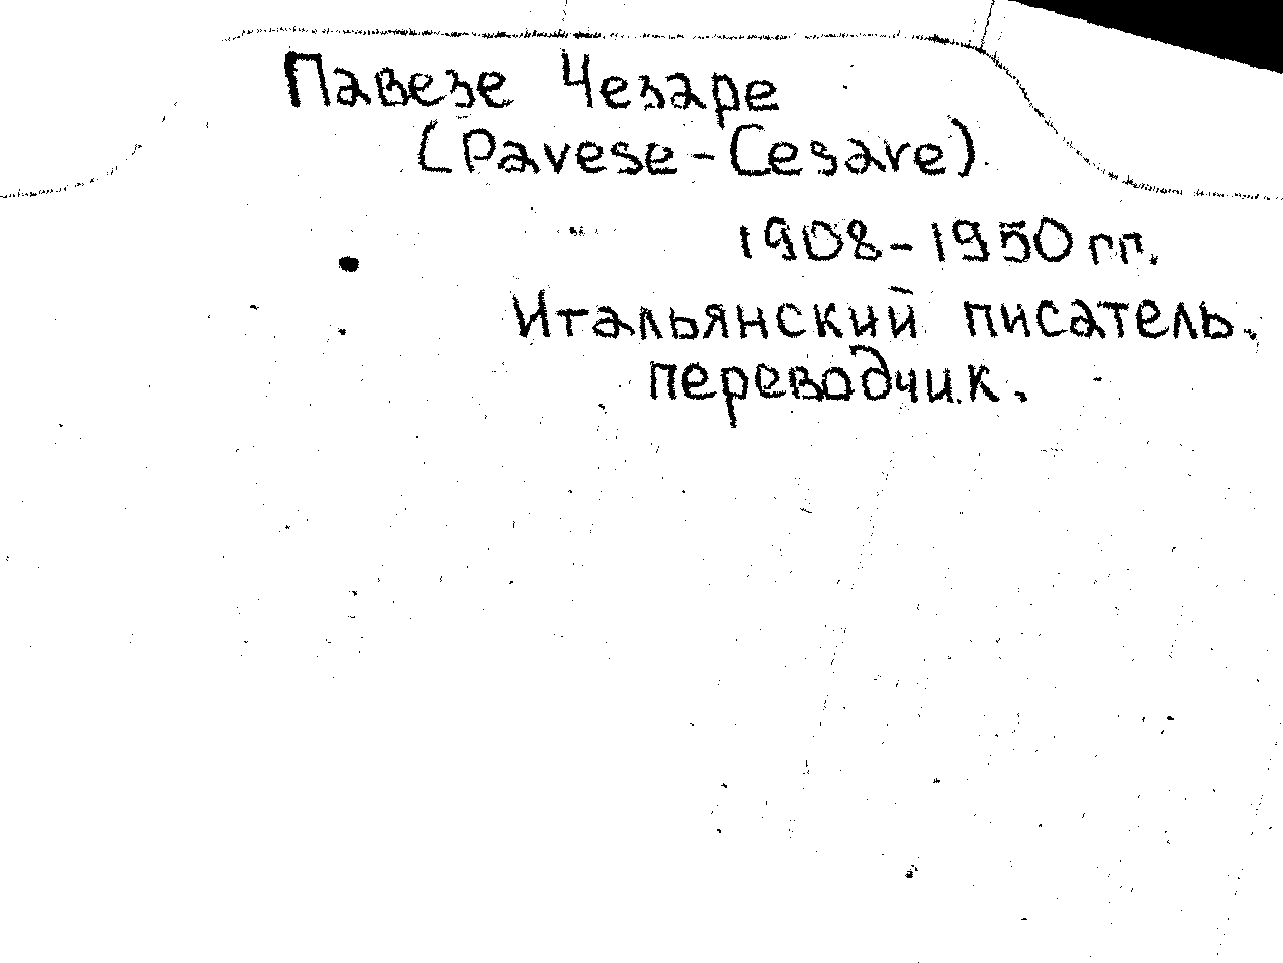 Павезе Чезаре
(Pavese-Cesare)
1908-1950 гг.
Итальянский писатель.
переводчик.